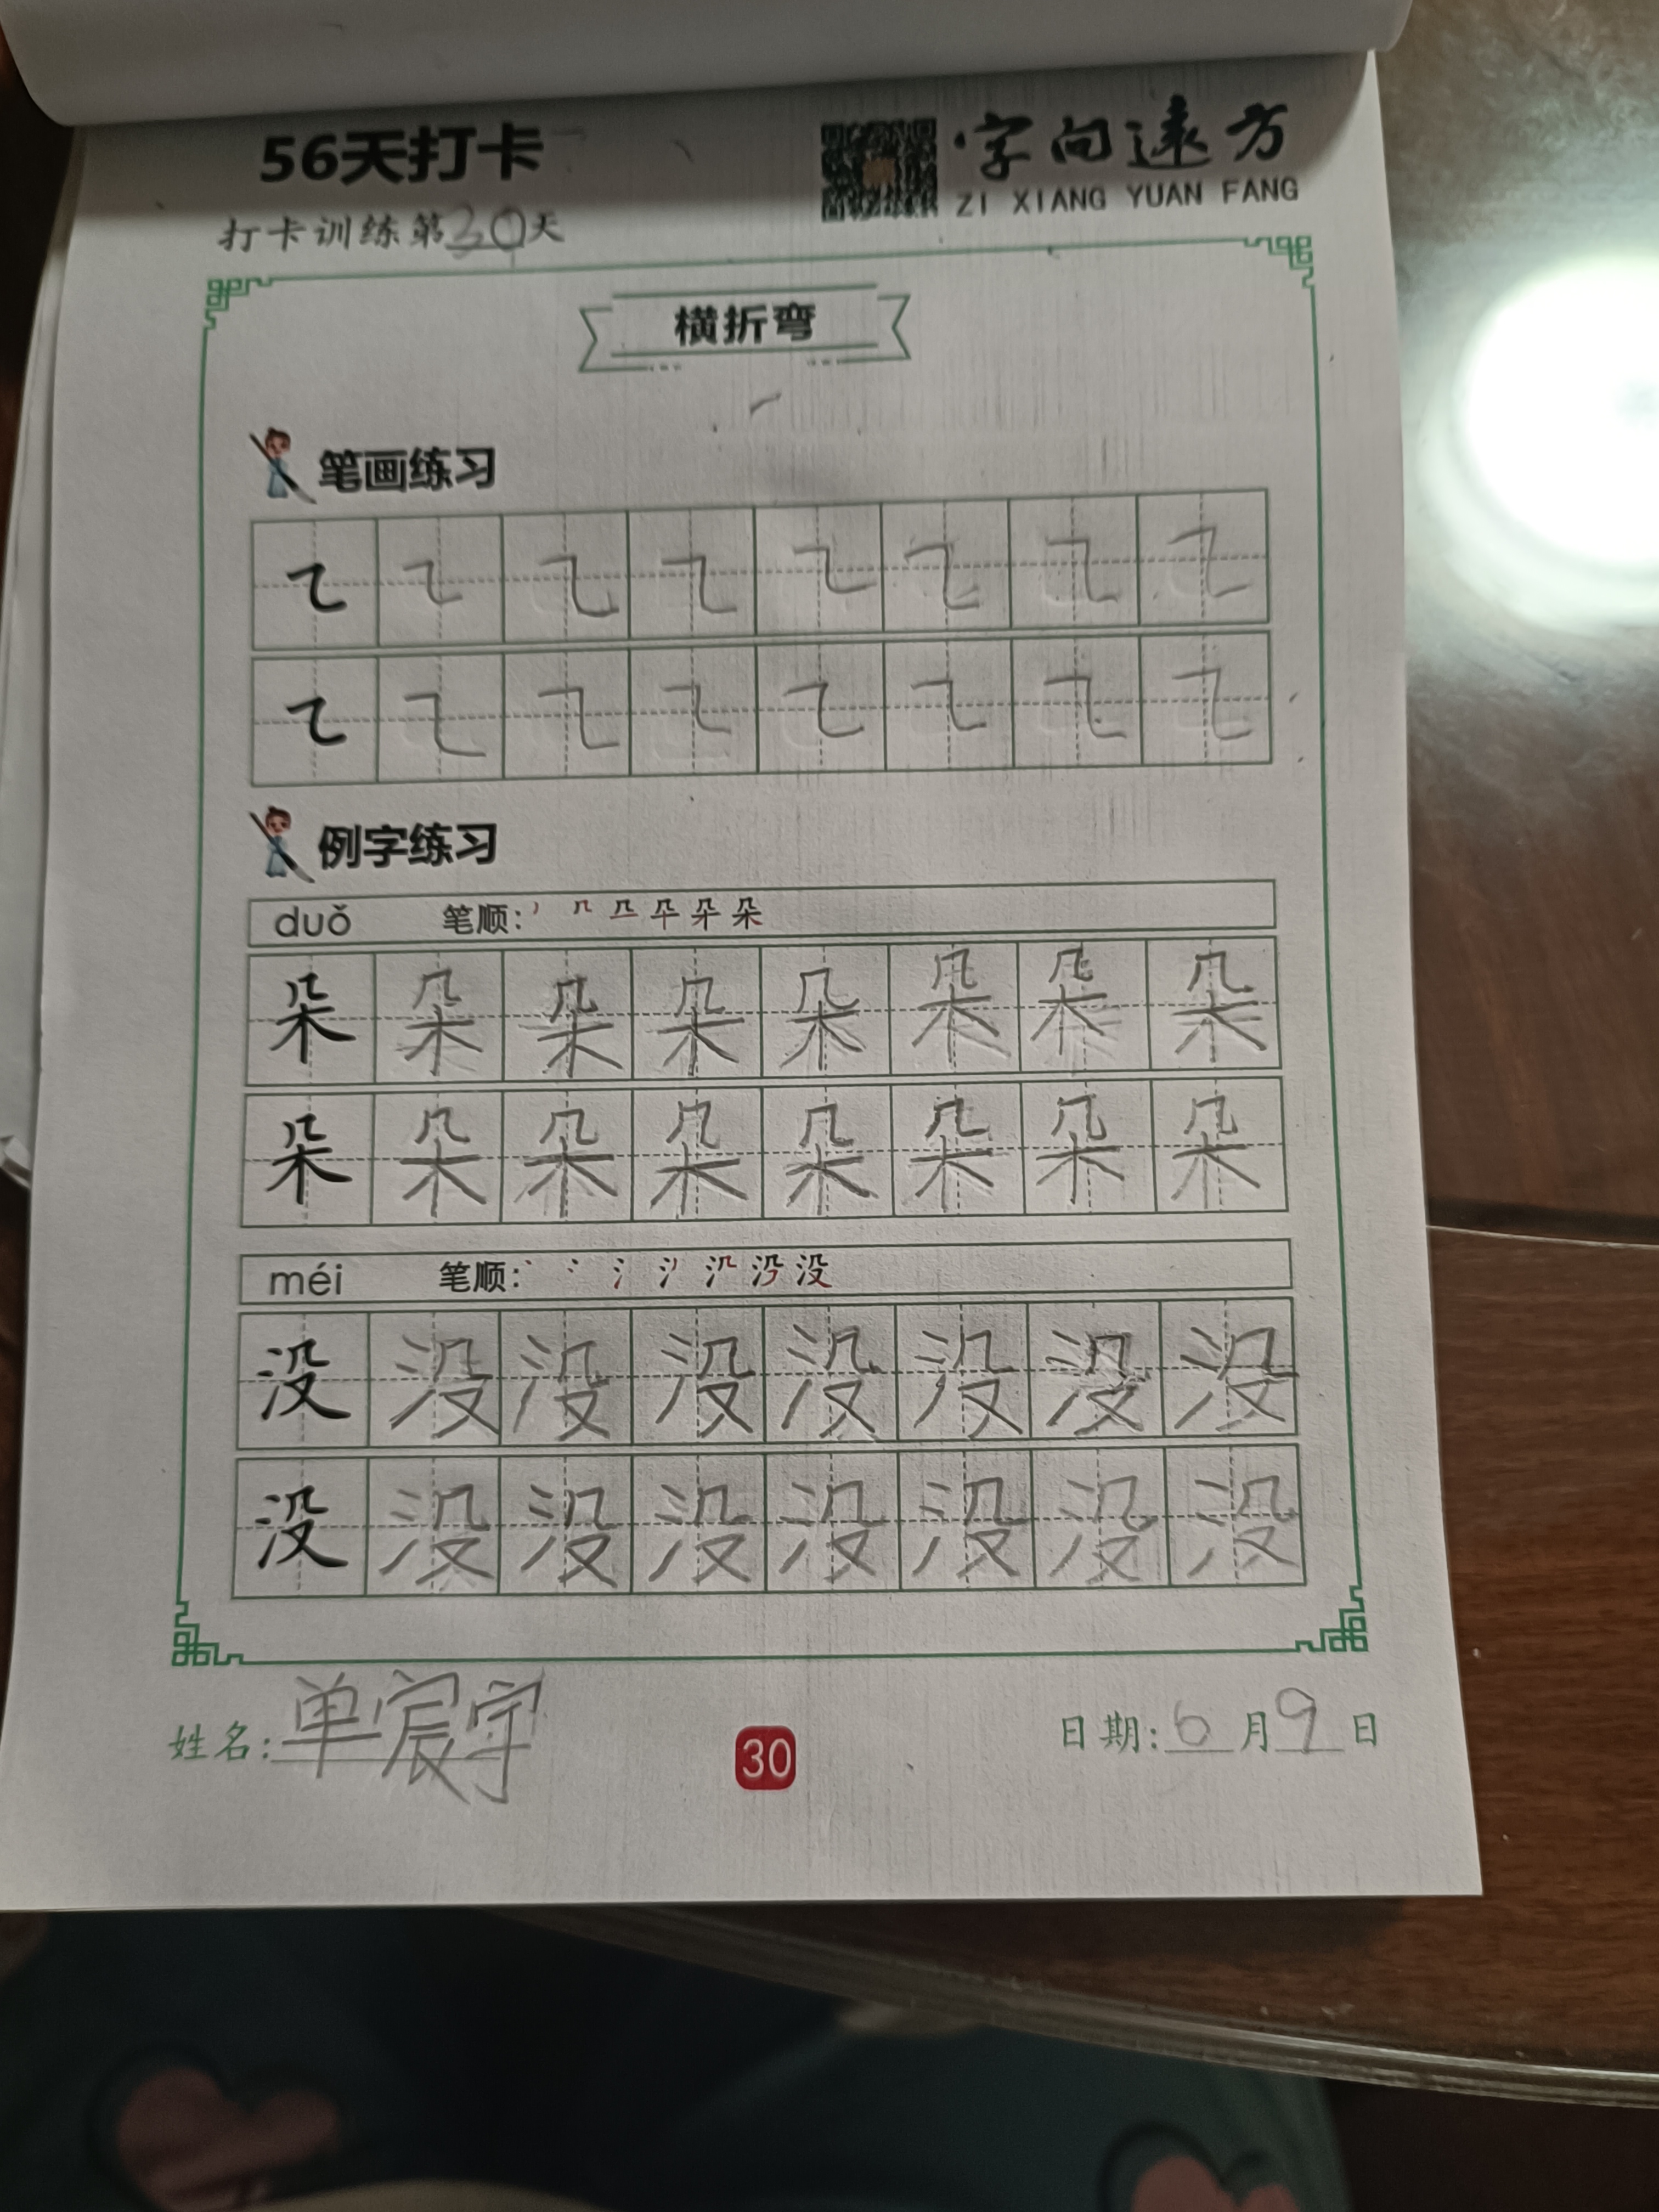 56天打卡
字向远方
ZI XIANG YUAN FANG
打卡训练第30天
横折弯
笔画练习
㇍ ㇍ ㇍ ㇍ ㇍ ㇍ ㇍ ㇍
㇍ ㇍ ㇍ ㇍ ㇍ ㇍ ㇍ ㇍
例字练习
duǒ 笔顺:
朵 朵 朵 朵 朵 朵 朵 朵
朵 朵 朵 朵 朵 朵 朵 朵
méi 笔顺:
没 没 没 没 没 没 没 没
没 没 没 没 没 没 没 没
姓名:单宸宇
30
日期:6月9日